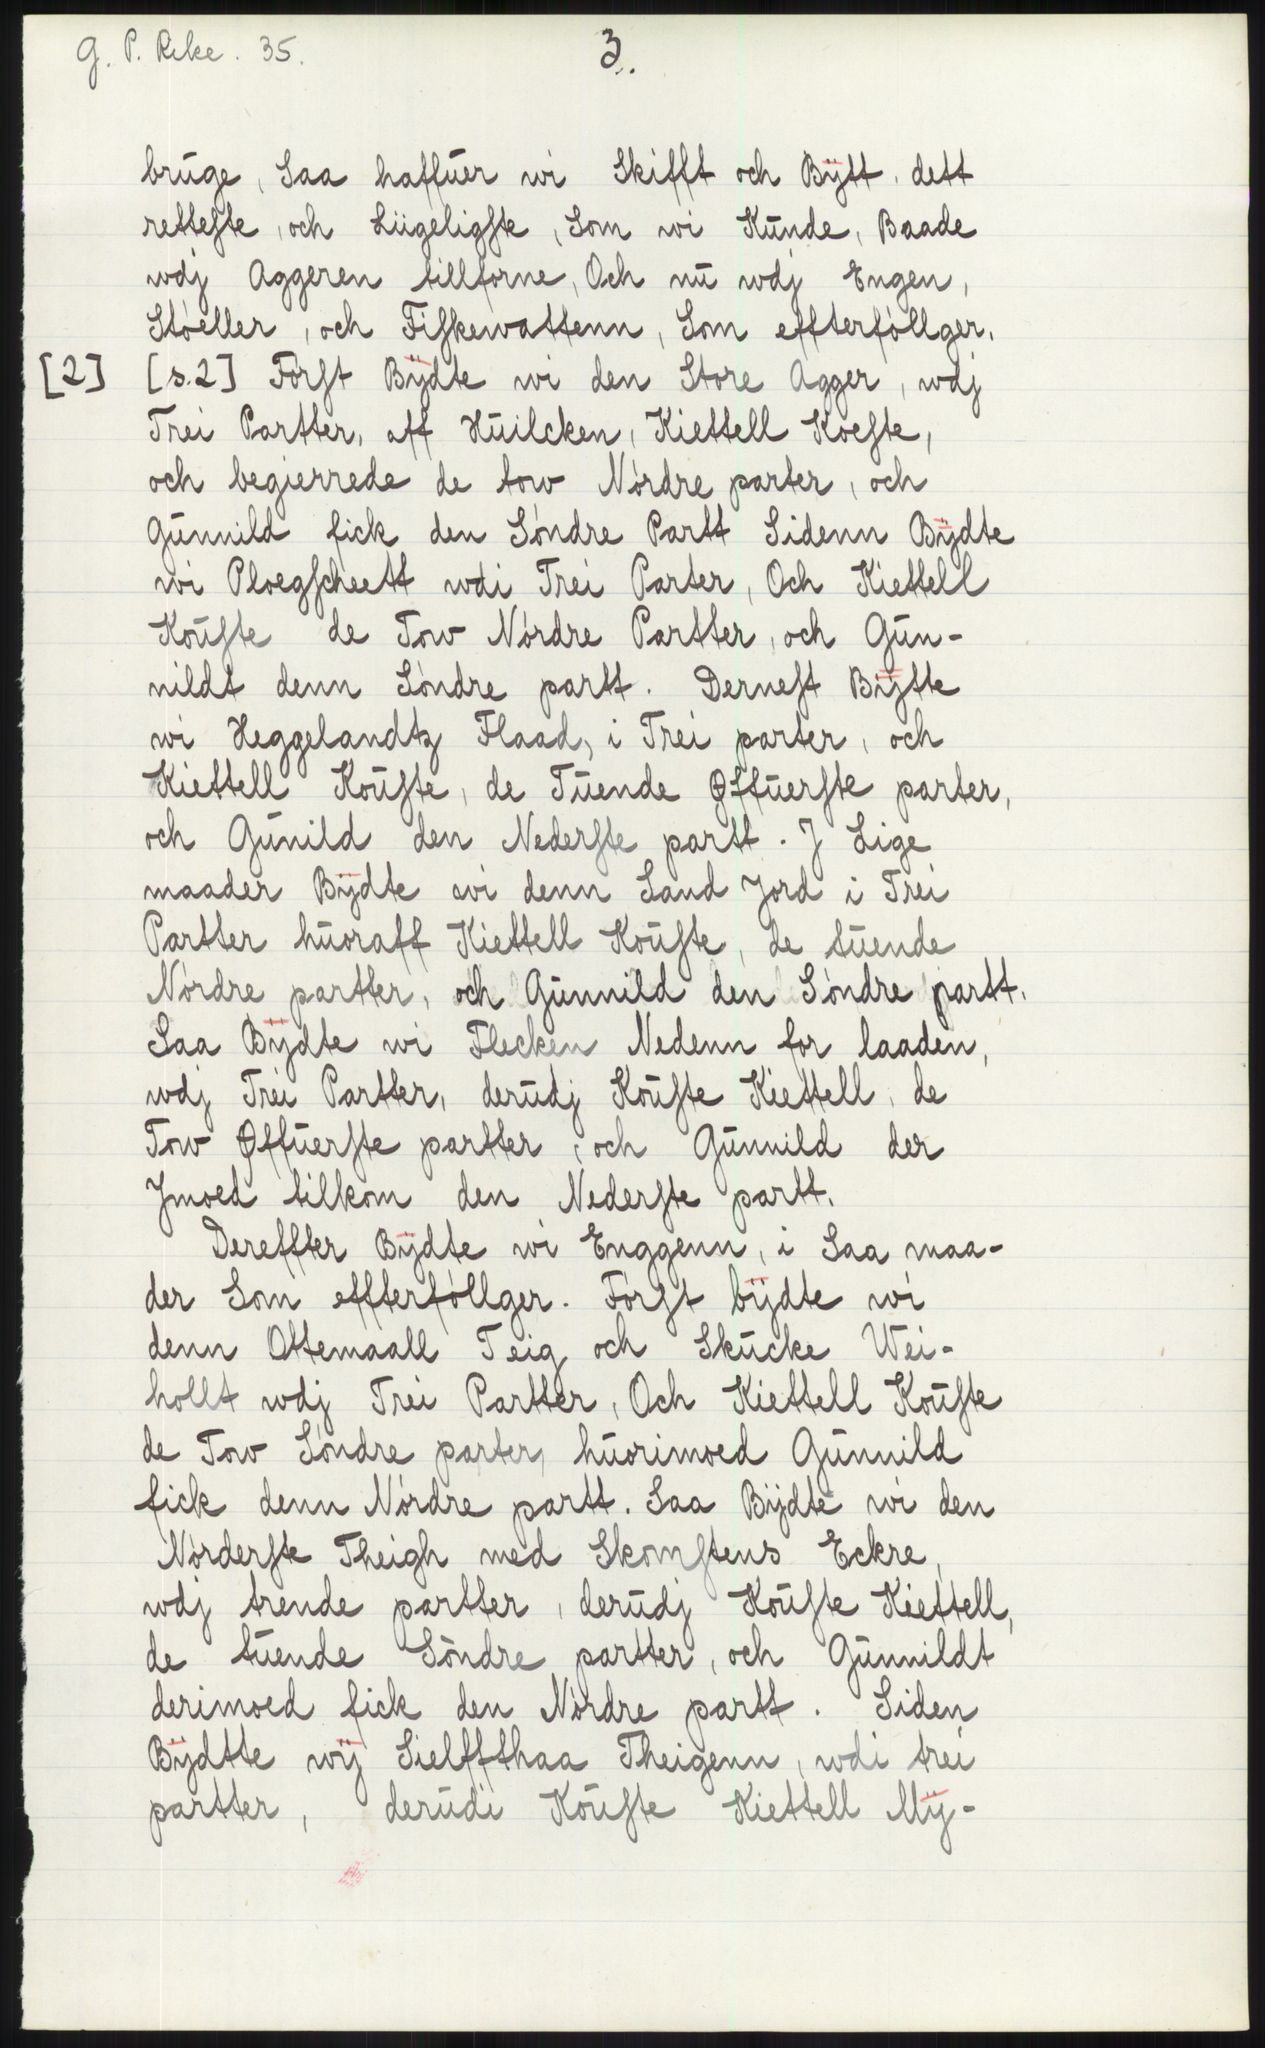 G. P. Reke. 35.
3.
bruge, Saa haffuer wi Skifft och Bÿtt. dett
retteste, och Liigeligste, Som wi Kunde, Baade
wdj Aggeren tillforne, Och nu wdj Engen,
Stóeller, och Fiskewattenn, Som effterfóllger.
[2] [s. 2] Fórst Bÿdte wi den Store Agger, wdj
Trei Partter, aff Huilcken, Kiettell Koeste,
och begierrede de tow Nórdre parter, och
Gunnild fick den Sóndre Partt Sidenn Bÿdte
wi Ploegscheett wdi Trei Parter, Och Kiettell
Kouste de Tow Nórdre Partter, och Gun-
nildt denn Sóndre partt. Dernest Bÿtte
wi Heggelandtz Flaad, i Trei parter, och
Kiettell Kouste, de Tuende Øffuerste parter,
och Gunild den Nederste partt. J Lige
maader Bÿdte wi denn Sand Jord i Trei
Partter huoraff Kiettell Kouste, de tuende
Nórdre partter, och Gunnild den Sóndre partt.
Saa Bÿdte wi Flecken Nedenn for laaden,
wdj Trei Partter, derudj Kouste Kiettell, de
Tow Øffuerste partter, och Gunnild der
Jmoed tilkom den Nederste partt.
Dereffter Bÿdte wi Enggenn, i Saa maa-
der Som effterfóllger. Fórst bÿdte wi
denn Ottemaall Teig och Skucke Wei-
hollt wdj Trei Partter, Och Kiettell Kouste
de Tow Sóndre parter, huorimoed Gunnild
fick denn Nórdre partt. Saa Bÿdte wi den
Nórderste Theigh med Skomstens Eckre,
wdj trende partter, derudj Kouste Kiettell,
de tuende Sóndre partter, och Gunnildt
derimoed fick den Nórdre partt. Siden
Bÿdtte wÿ Sielffthaa Theigenn, wdi trei
partter, derudi Kouste Kiettell Mÿ-